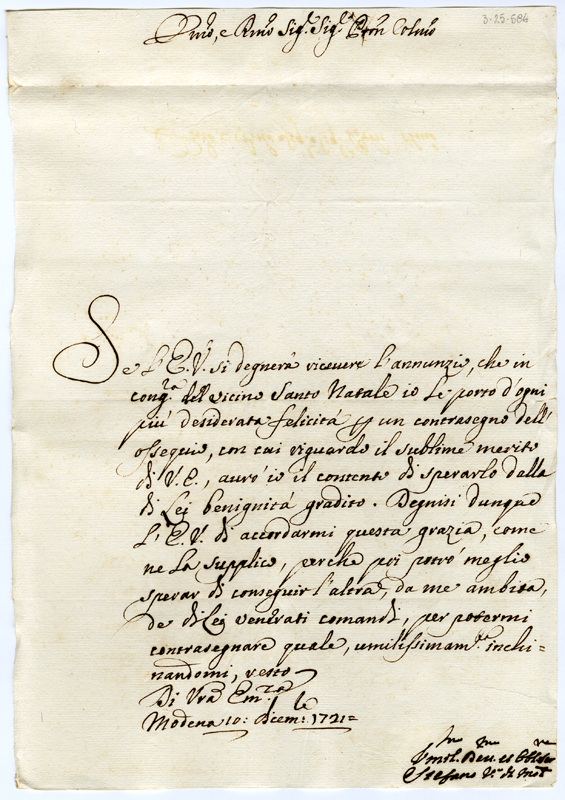 3-25-684
Emo, e Rmo Sig.r Sig.r Pron Colmo
Se l'E.V. si degnerà ricevere l'annunzio, che in
cong.a del vicino Santo Natale io Le porto d'ogni
più desiderata felicità un contrasegno dell'
ossequio, con cui riguardo il sublime merito
di V.E., avrò io il contento di sperarlo dalla
di Lei benignità gradito. Degnisi dunque
l'E.V. di accordarmi questa grazia, come
ne La supplico, perche poi potrò meglio
sperar di conseguir l'altra, da me ambita,
de di Lei venerati comandi, per potermi
contrasegnare quale, umilissimam.te inchi=
nandomi, resto
Di Vra Em.za
Modena 10: Dicem.le 1721=
Umil.mo Dev.mo et Obl. Ser.re
Stefano V.o di Mod.a